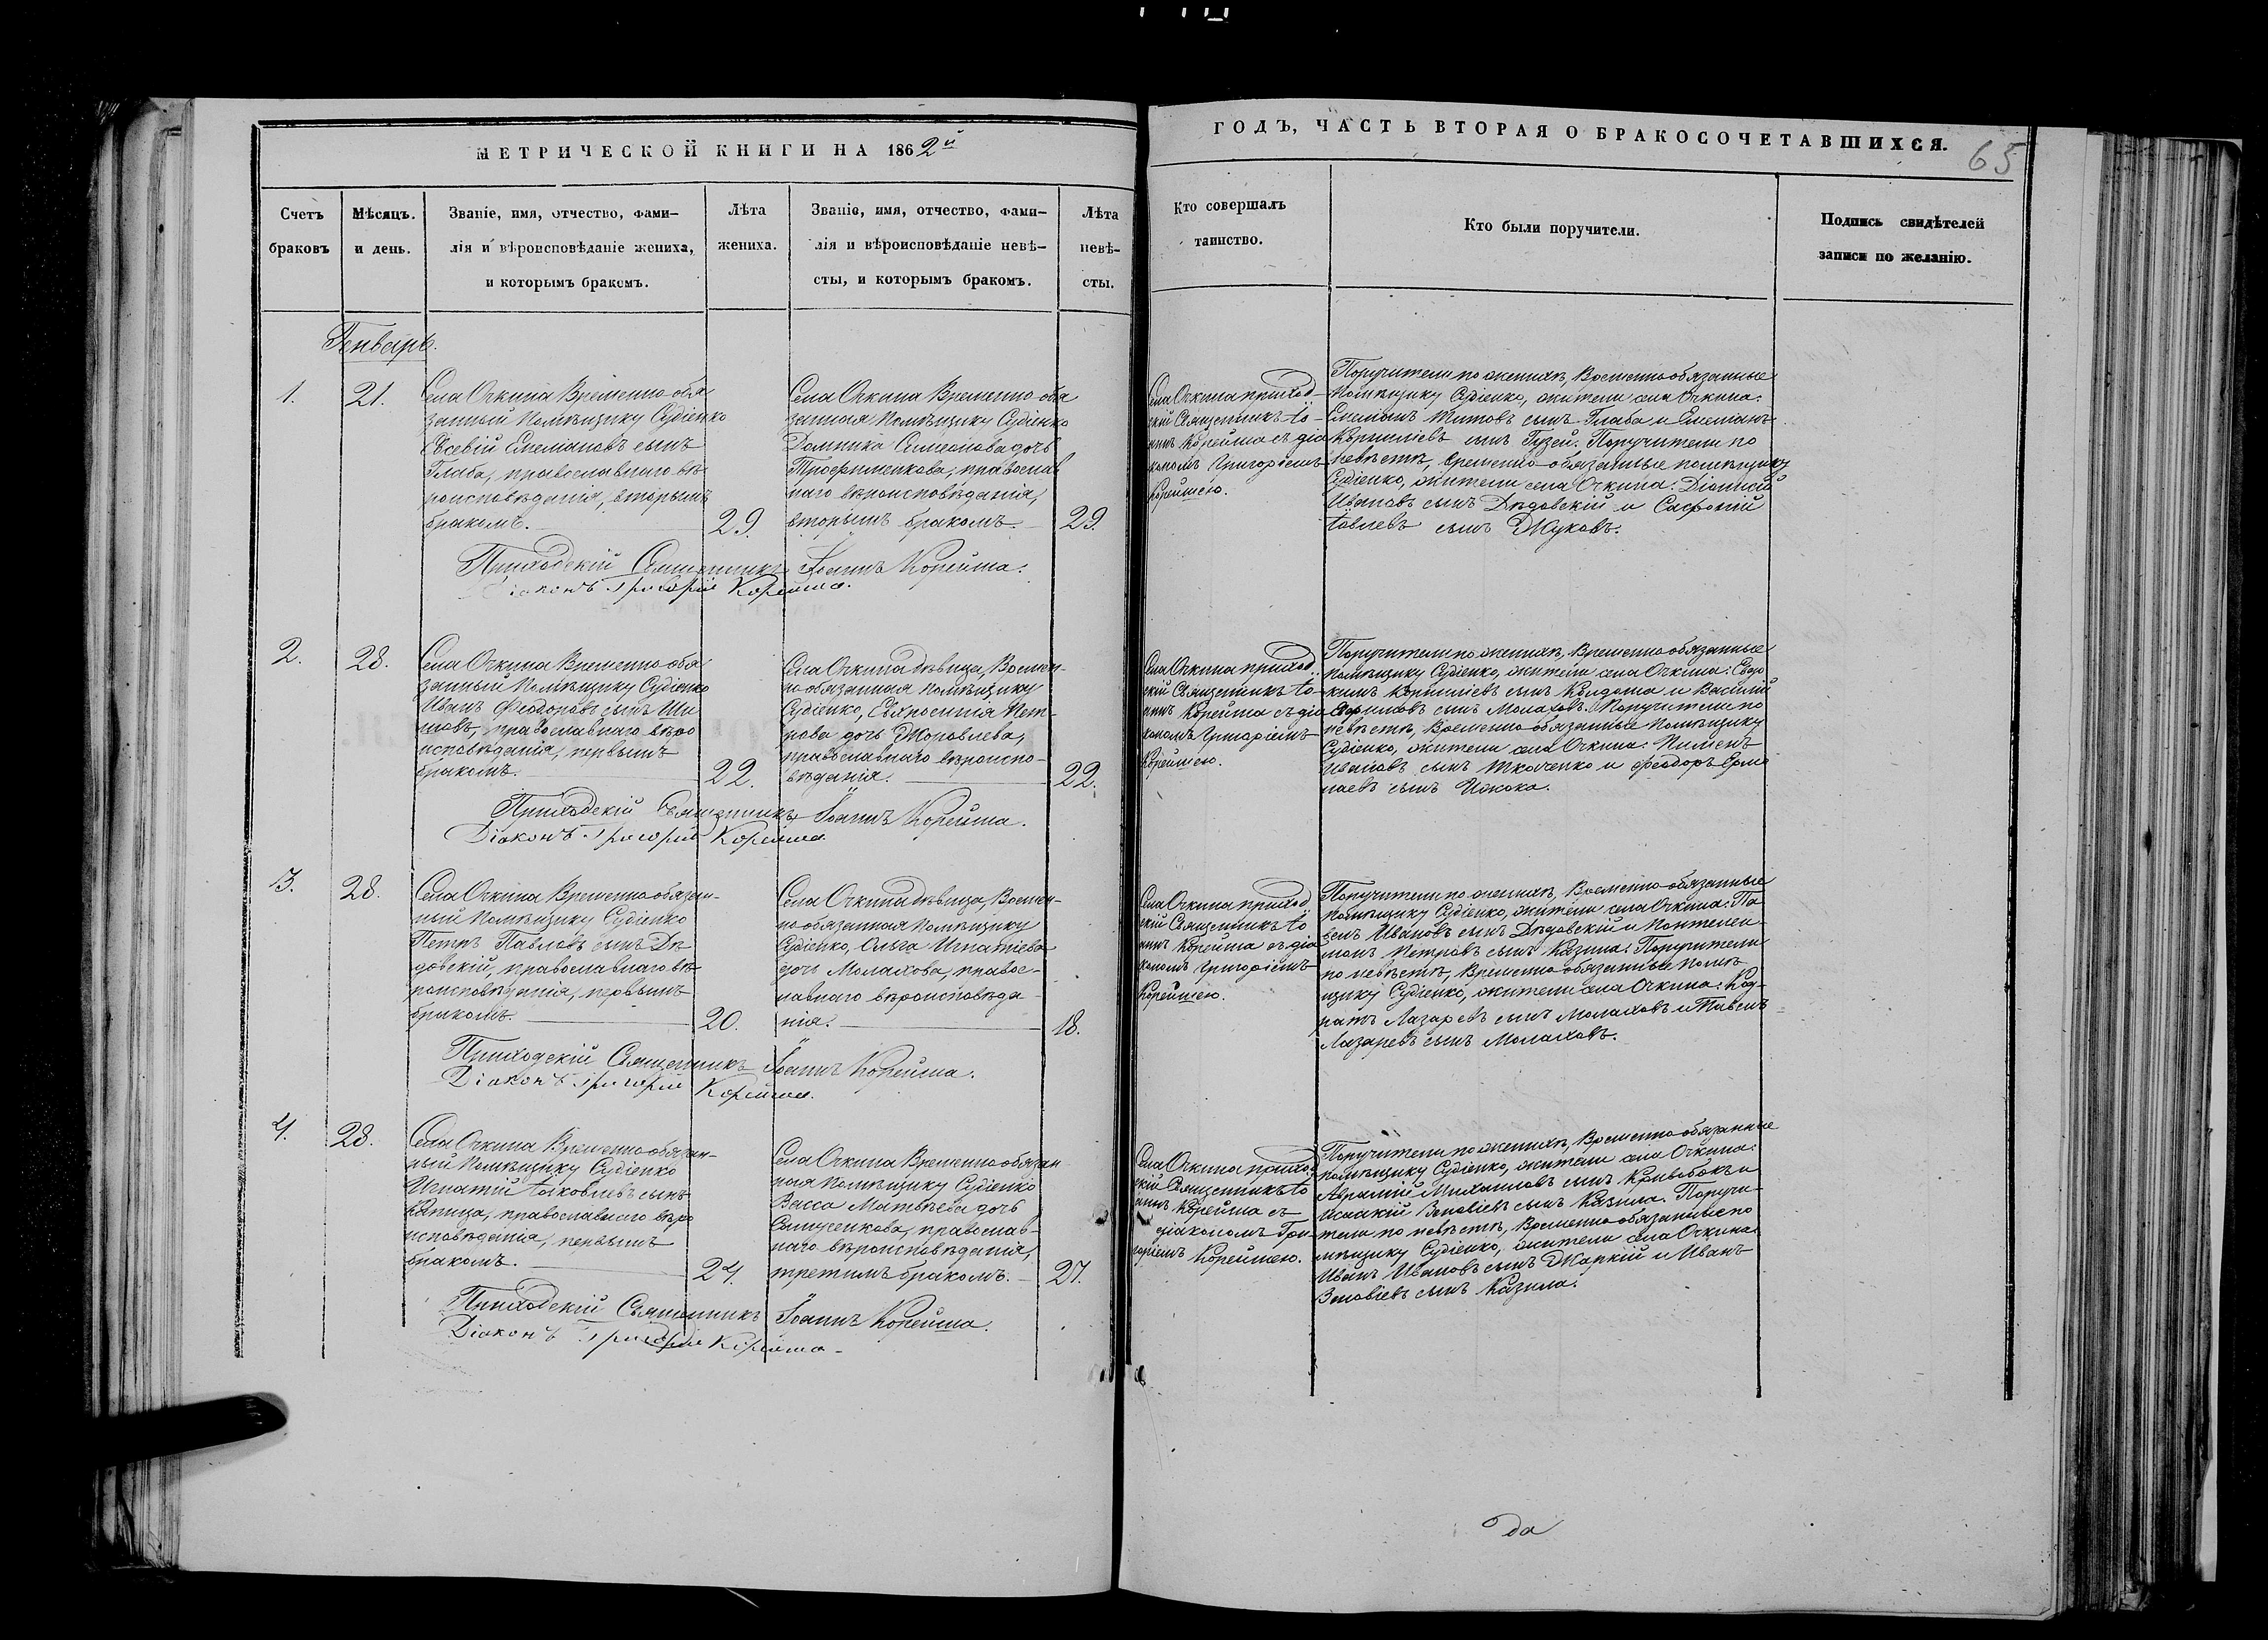 МЕТРИЧЕСКОЙ КНИГИ НА 1862й
ГОДЪ, ЧАСТЬ ВТОРАЯ О БРАКОСОЧЕТАВШИХСЯ.
65
Счетъ
браковъ
Мѣсяцъ.
и день.
Званіе, имя, отчество, фами-
лія и вѣроисповѣданіе жениха,
и которымъ бракомъ.
Лѣта
жениха.
Званіе, имя, отчество, фами-
лія и вѣроисповѣданіе невѣ-
сты, и которымъ бракомъ.
Лѣта
невѣ-
сты.
Кто совершалъ
таинство.
Кто были поручители.
Подпись свидѣтелей
записи по желанію.
Генварь.
1.
21.
Села Очкина Временно-обя
занный Помѣщику Судіенко
Евсевій Емеліановъ сынъ
Глаба, православнаго вѣ-
роисповѣданія, вторымъ
бракомъ.
29.
Села Очкина Временно-обя
занная Помѣщику Судіенко
Домника Симеонова дочь
Трофименкова, православ
наго вѣроисповѣданія,
вторымъ бракомъ.
29.
Села Очкина приход-
скій Священникъ Іо-
аннъ Корейша съ діа
кономъ Григоріемъ
Корейшею.
Поручители по женихѣ, Временно обязанные
помѣщику Судіенко, жители села Очкина:
Емеліанъ Титовъ сынъ Глаба и Емеліанъ
Корниліевъ сынъ Гузей. Поручители по
невѣстѣ, временно-обязанные помѣщику
Судіенко, жители села Очкина: Діонисій
Ивановъ сынъ Дѣдовскій и Сафроній
Іовлевъ сынъ Жуковъ.
Приходскій Священникъ Іоаннъ Корейша.
Діаконъ Григорій Корейша.
2.
28.
Села Очкина Временно обя
занный Помѣщику Судіенко
Иванъ Феодоровъ сынъ Ши
повъ, православнаго вѣро
исповѣданія, первымъ
бракомъ.
22.
Села Очкина дѣвица, Времен-
но обязанная помѣщику
Судіенко, Евфросинія Пет-
рова дочь Журавлева,
православнаго вѣроиспо-
вѣданія.
22.
Села Очкина приход
скій Священникъ Іо-
аннъ Корейша съ діа
кономъ Григоріемъ
Корейшею.
Поручители по женихѣ, Временно обязанные
помѣщику Судіенко, жители села Очкина: Евдо
кимъ Корниліевъ сынъ Колдоша и Василій
сынъ Малаховъ. Поручители по
невѣстѣ, Временно обязанные Помѣщику
Судіенко, жители села Очкина: Пименъ
Ивановъ сынъ Ткаченко и Феодоръ Ермо
лаевъ сынъ
Приходскій Священникъ Іоаннъ Корейша.
Діаконъ Григорій Корейша.
3.
28.
Села Очкина Временно обязан-
ный Помѣщику Судіенко
Петръ Павловъ сынъ Дѣ
довскій, православнаго вѣ-
роисповѣданія, первымъ
бракомъ.
20.
Села Очкина дѣвица, Времен-
но обязанная Помѣщику
Судіенко, Ольга Игнатіева
дочь Малахова, правос-
лавнаго вѣроисповѣда
нія.
18.
Села Очкина приход
скій Священникъ Іо
аннъ Корейша съ діа
кономъ Григоріемъ
Корейшею.
Поручители по женихѣ, Временно-обязанные
помѣщику Судіенко, жители села Очкина: Па
велъ Ивановъ сынъ Дѣдовскій и Пантелеи-
монъ Петровъ сынъ Казина. Поручители
по невѣстѣ, Временно обязанные помѣ-
щику Судіенко, жители села Очкина: Код-
ратъ Лазаревъ сынъ Малаховъ и Павелъ
Лазаревъ сынъ Малаховъ.
Приходскій Священникъ Іоаннъ Корейша.
Діаконъ Григорій Корейша.
4.
28.
Села Очкина Временно обязан-
ный Помѣщику Судіенко
Игнатій Іаковлевъ сынъ
Капица, православнаго вѣро
исповѣданія, первымъ
бракомъ.
24.
Села Очкина Временно обязан
ная Помѣщику Судіенко
Васса Матвѣева дочь
православ-
наго вѣроисповѣданія,
третимъ бракомъ.
27.
Села Очкина приход
скій Священникъ Іо
аннъ Корейша съ
діакономъ Гри-
горіемъ Корейшею.
Поручители по женихѣ, Временно обязанные
помѣщику Судіенко, жители села Очкина:
Аврамій Михаиловъ сынъ Кривобокъ и
Исаакій Зеновіевъ сынъ Казила. Поручи-
тели по невѣстѣ, Временно обязанные по
мѣщику Судіенко, жители села Очкина:
Иванъ Ивановъ сынъ Жаркій и Иванъ
Зеновіевъ сынъ Казила.
Приходскій Священникъ Іоаннъ Корейша.
Діаконъ Григорій Корейша.
да